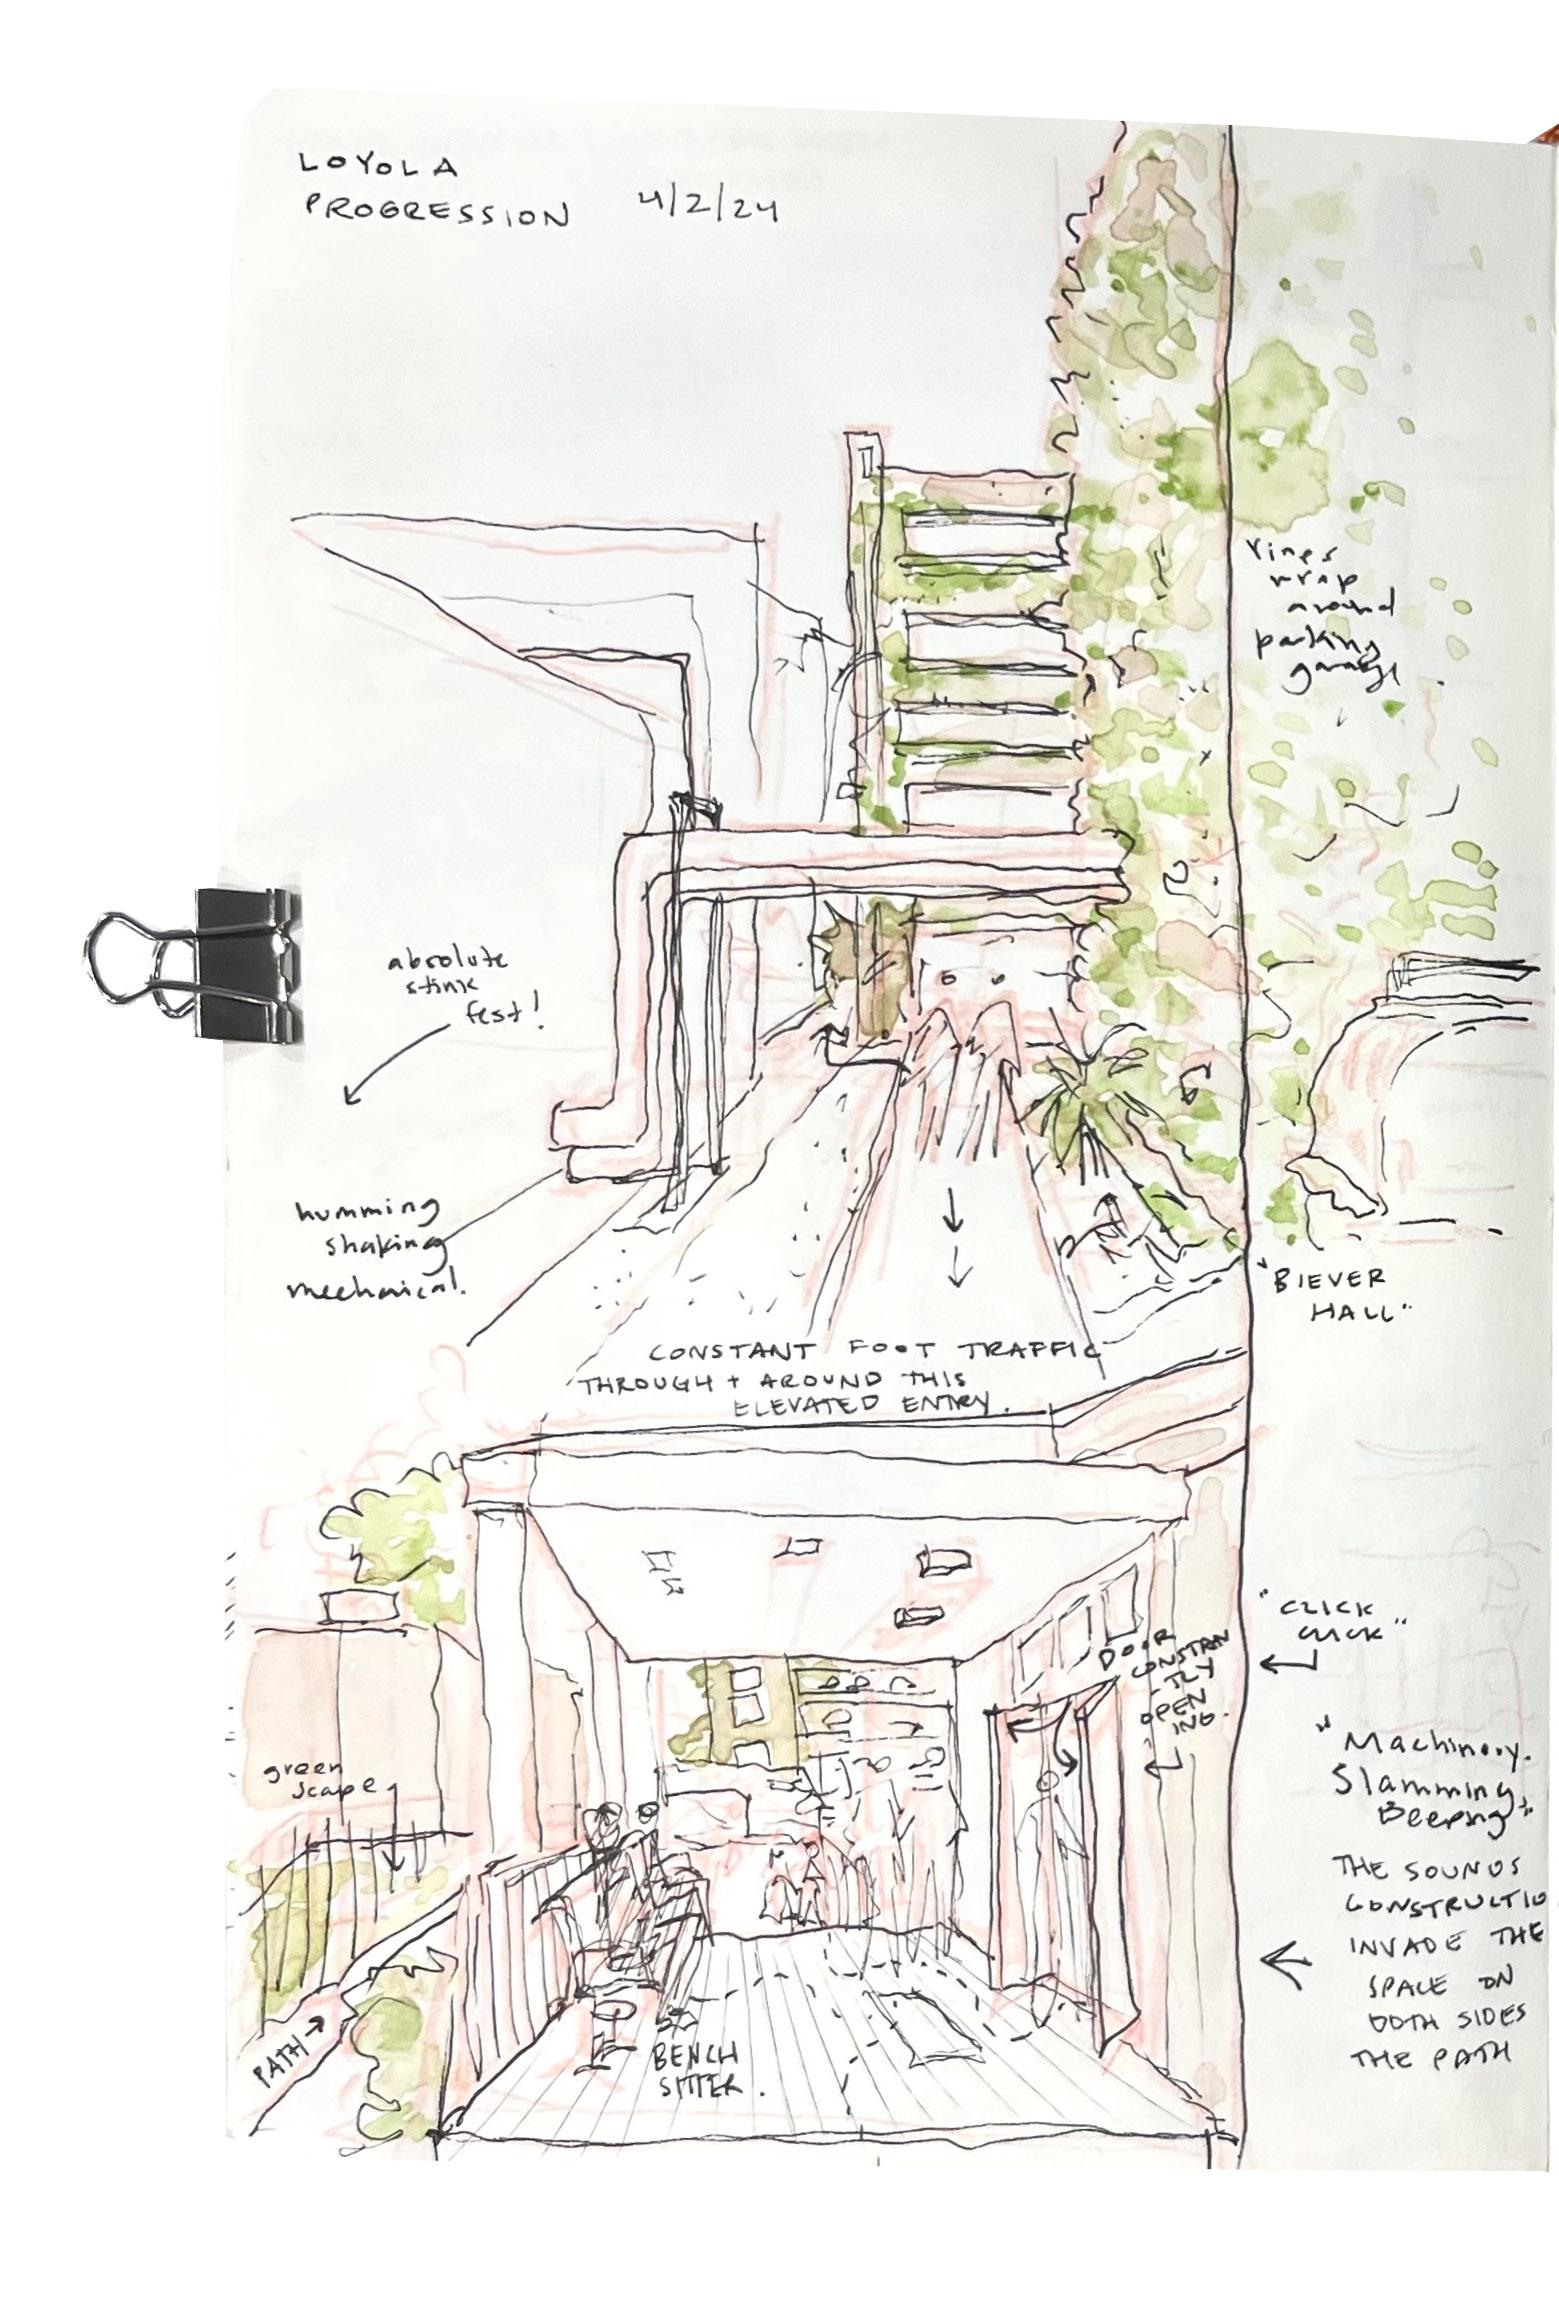 LOYOLA
PROGRESSION 4/2/24
Vines
wrap
around
parking
garage.
absolute
stink
fest!
humming
shaking
mechanical.
"BIEVER
HALL"
CONSTANT FOOT TRAFFIC
THROUGH + AROUND THIS
ELEVATED ENTRY.
"CLICK
CLICK"
DOOR
CONSTAN
-TLY
OPEN
ING.
"Machinery.
Slamming
Beeping"
green
scape
THE SOUNDS
CONSTRUCTIO
INVADE THE
SPACE ON
BOTH SIDES
THE PATH
PATH
BENCH
SITTER.